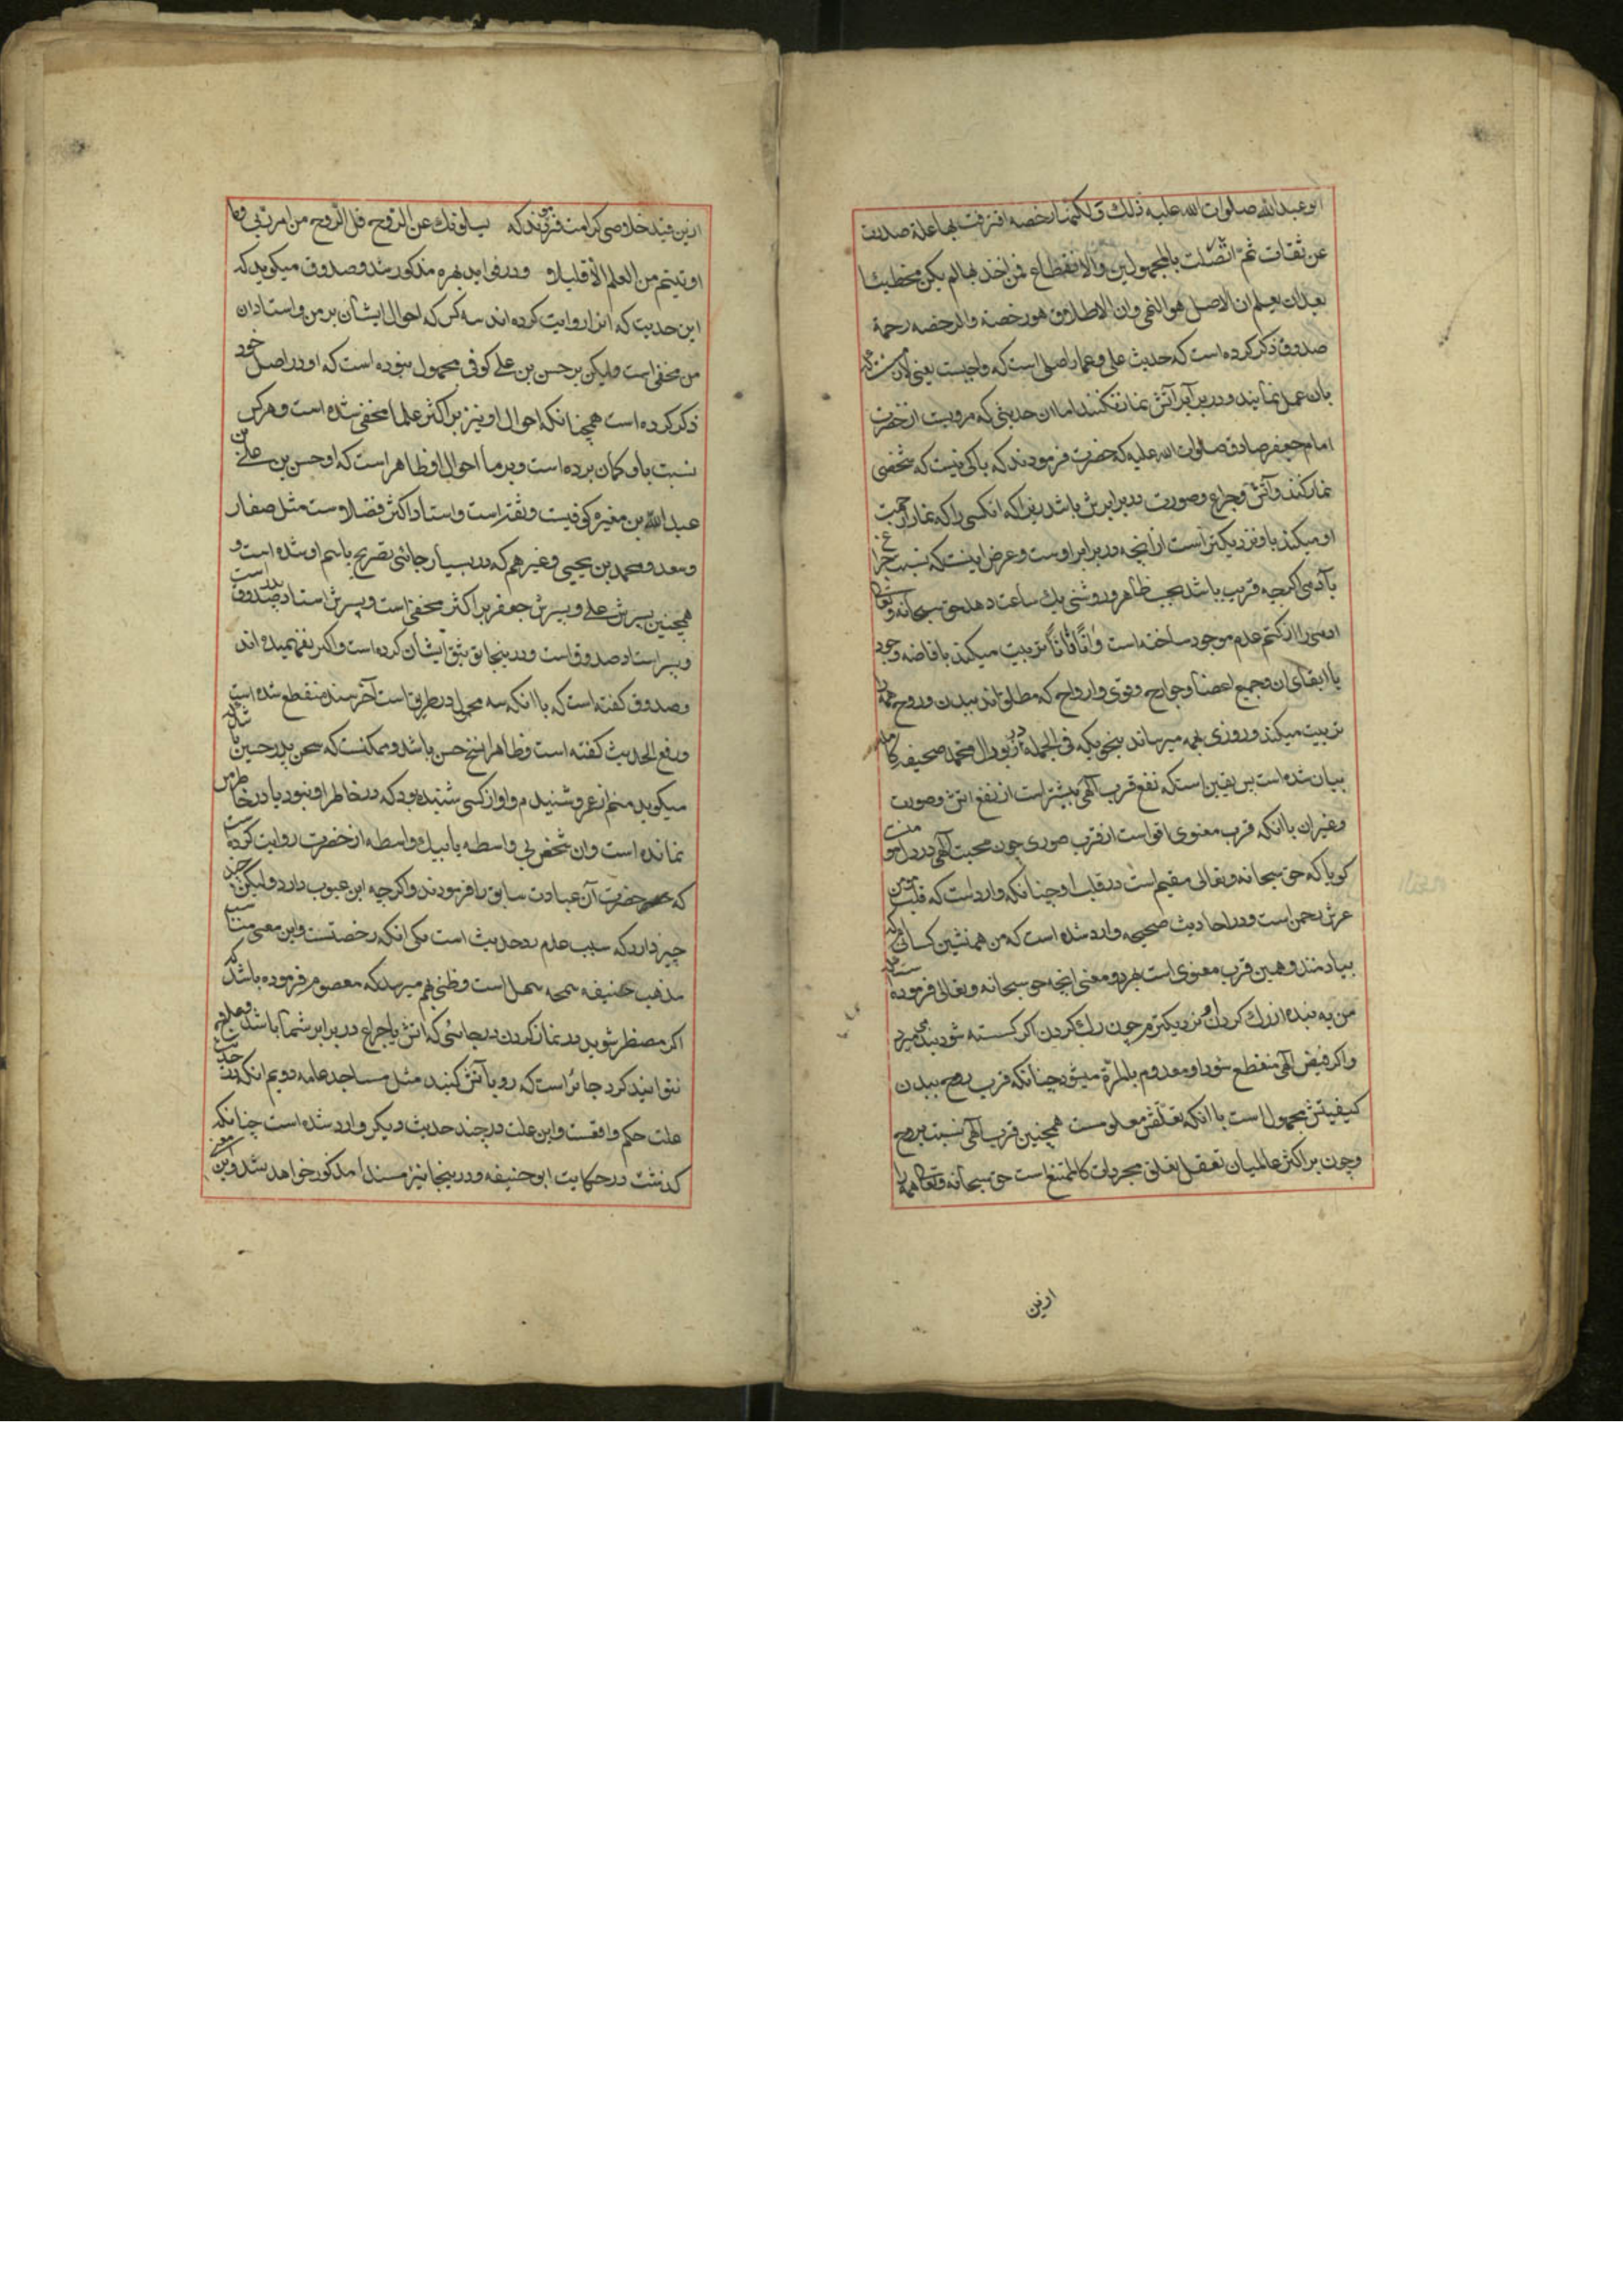 ابو عبدالله صلوات الله علیه ذلك و لکنها رخصه اقترفت بها علة صدرت
عن ثقات ثمّ اتّصلت بالمجهولین والانقطاع فمن اخذ بها لم یکن مخطیئا
بعد ان یعلم ان الاصل هو النهی وان الاطلاق هو رخصة والرخصه رحمة
صدوق ذکر کرده است که حدیث علی و عمار اصلی است که واجبست یعنی لازمست که
بان عمل نمایند و در برابر آتش نماز نکنند اما ان حدیثی که مرویست از حضرت
امام جعفر صادق صلوات الله علیه که حضرت فرمودند که باکی نیست که شخصی
نماز کند و آتش و چراغ و صورت در برابرش باشد زیرا که انکسی را که نماز از جهت
او میکند باو نزدیکتر است از انچه در برابر اوست و غرض اینست که نسبت چراغ
بآدمی اگرچه قریب باشد بحسب ظاهر و روشنی یك ساعت دهد حق سبحانه و تعالی
ادمی را از کتم عدم موجود ساخته است و انًا فانًا تربیت میکند بافاضه وجود
با ابقای ان و جمیع اعضا و جوارح و قوی و ارواح که مطلق اند ببدن و روح همه را
تربیت میکند و روزی بهمه میرساند بنحویکه فی الجمله در زبور ال محمد صحیفه کامله
بیان شده است پس یقین است که نفع قرب آلهی بیشتر است از نفع اتش و صورت
و غیر ان با انکه قرب معنوی اقواست از قرب صوری چون محبت آلهی در دل مومنست
کویا که حق سبحانه و تعالی مقیم است در قلب او چنانکه وارد است که قلب مومن
عرش رحمن است و در احادیث صحیحه وارد شده است که من همنشین کسانی ام که
بیاد منند و همین قرب معنوی است بهر دو معنی انچه حق سبحانه و تعالی فرموده است که
من به بنده از رك کردن او نزدیکترم چون رك کردن اکر کسسته شود بنده می میرد
واکر فیض آلهی منقطع شود او معدوم بالمرّة میشود چنانکه قرب روح ببدن
کیفیتش مجهول است با انکه تعلّقش معلومست همچنین قرب آلهی نسبت بروح
و چون بر اکثر عالمیان تعقل تعلق مجردات کالممتنع است حق سبحانه و تعالی همه را
ازین
ازین قید خلاصی کرامت فرموند که یسلونك عن الرّوح قل الرّوح من امر ربّی و ما
اوتیتم من العلم الّا قلیلا و در فواید بهره مذکور شد و صدوق میکوید که
این حدیث که انرا روایت کرده اند سه کس که احوال ایشان بر من و استادان
من مخفی است ولیکن بر حسن بن علی کوفی مجهول نبوده است که او در اصل خود
ذکر کرده است همچنانکه احوال او نیز بر اکثر علما مخفی شده است و هر کس
نسبت باو کمان برده است و بر ما احوال او ظاهر است که او حسن بن علی بن
عبد الله بن مغیره کوفیست و ثقة است و استاد اکثر فضلاوست مثل صفار
و سعد و محمد بن یحیی و غیرهم که در بسیار جائی تصریح باسم او شده است و
همچنین پسرش علی و پسرش جعفر بر اکثر مخفی است و پسرش استاد پدر صدوق است
و پسر استاد صدوق است و در ینجا توثیق ایشان کرده است و اکثر نفهمیده اند
و صدوق کفته است که با انکه سه مجهول در طریق است آخر سند منقطع شده است
و رفع الحدیث کفته است و ظاهرا نسخ حسن باشد و ممکنست که پدر حسین باشد که
میکوید منهم از عمرو شنیدم و او از کسی شنیده بود که در خاطر او نبود یا در خاطر من
نمانده است و ان شخص بی واسطه یا بیك واسطه از حضرت روایت کرده است
که حضرت آن عبادت سابق را فرمودند و اکرچه این عیوب دارد ولیکن چند
چیز دارد که سبب عدم رد حدیث است یکی انکه رخصتست و این معنی مناسب
مذهب حنیفه سمحه سهل است و ظنی بهم میرسد که معصوم فرموده باشد که
اکر مضطر شوید در نماز کردن در جائی که اتش یا چراغ در برابر شما باشد و علاج
نتوانید کرد جائز است که رو بآتش کنید مثل مساجد عامه دویم انکه در حدیث
علت حکم واقعست و این علت در چند حدیث دیکر وارد شده است چنانکه
کذشت در حکایت ابو حنیفه و در ینجا نیز مسندا مذکور خواهد شد و این معنی